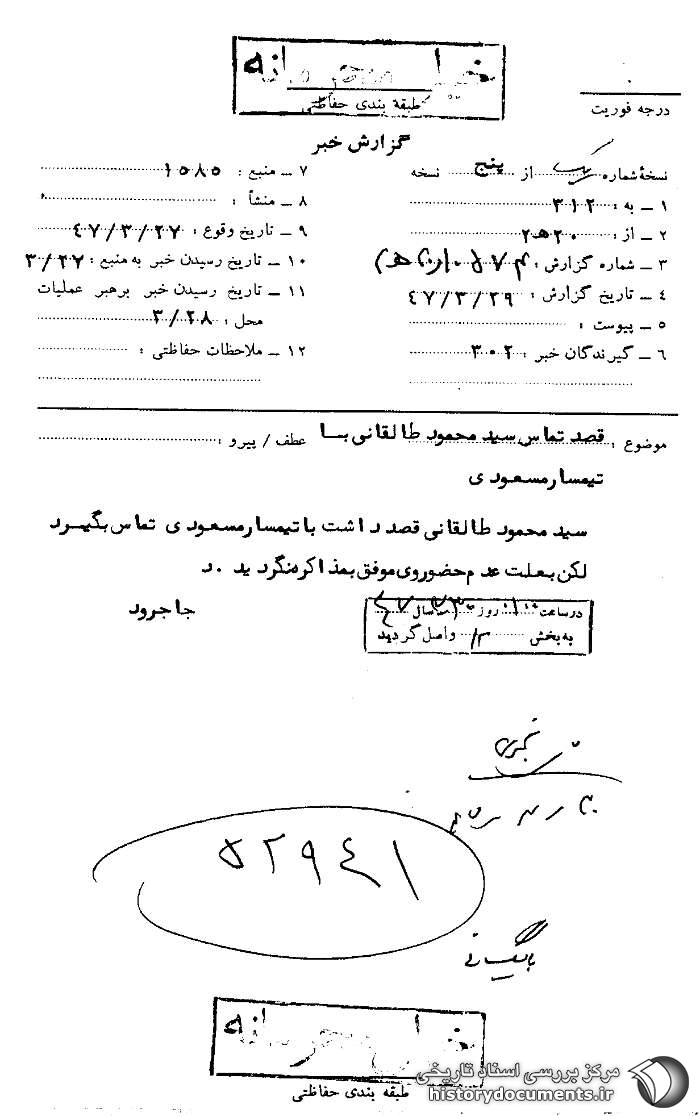 خیلی محرمانه
طبقه بندی حفاظتی
درجه فوریت
گزارش خبر
نسخهٔ شماره یک از پنج نسخه
۱ ــ به : ۳۱۲
۲ ــ از : ۲۰ ه‍ ۲
۳ ــ شماره گزارش :
۴ ــ تاریخ گزارش : ۴۷/۳/۲۹
۵ ــ پیوست :
۶ ــ گیرندگان خبر : ۳۰۲
۷ ــ منبع : ۱۵۸۵
۸ ــ منشأ :
۹ ــ تاریخ وقوع : ۴۷/۳/۲۷
۱۰ ــ تاریخ رسیدن خبر به منبع : ۳/۲۷
۱۱ ــ تاریخ رسیدن خبر برهبر عملیات
محل : ۳/۲۸
۱۲ ــ ملاحظات حفاظتی :
موضوع : قصد تماس سید محمود طالقانی بسا
عطف / پیرو :
تیمسار مسعودی
سید محمود طالقانی قصد داشت با تیمسار مسعودی تماس بگیرد
لکن بعلت عدم حضور وی موفق بمذاکره نگردید . د
جاجرود
در ساعت ۱۰ روز ماه سال ۴۷
به بخش واصل گردید
۵۲۹۴۱
بایگانی
خیلی محرمانه
طبقه بندی حفاظتی
مرکز بررسی اسناد تاریخی
historydocuments.ir